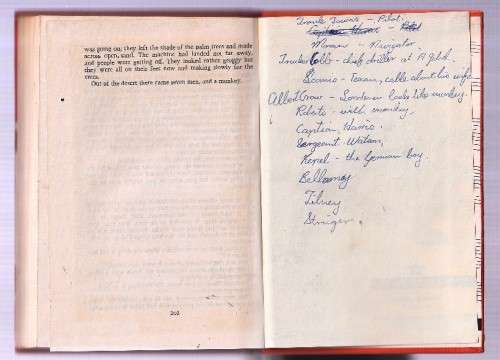 was going out they left the shade of the palm trees and made
across open, sand. The machine had landed not far away,
and people were getting off. They looked rather groggy but
they were all on their feet now and making slowly for the
trees.
Out of the desert there came seven men, and a monkey.
202
Frank Towns - Pilot.
Moran - Navigator
Trucker Cobb - chief driller at
Loomis - Texan, cable about his wife
Albert Crow - Londoner looks like monkey.
Roberts - with monkey.
Captain Harris.
Sergeant Watson,
Kepel - the German boy.
Bellamy
Tilney
Stringer.